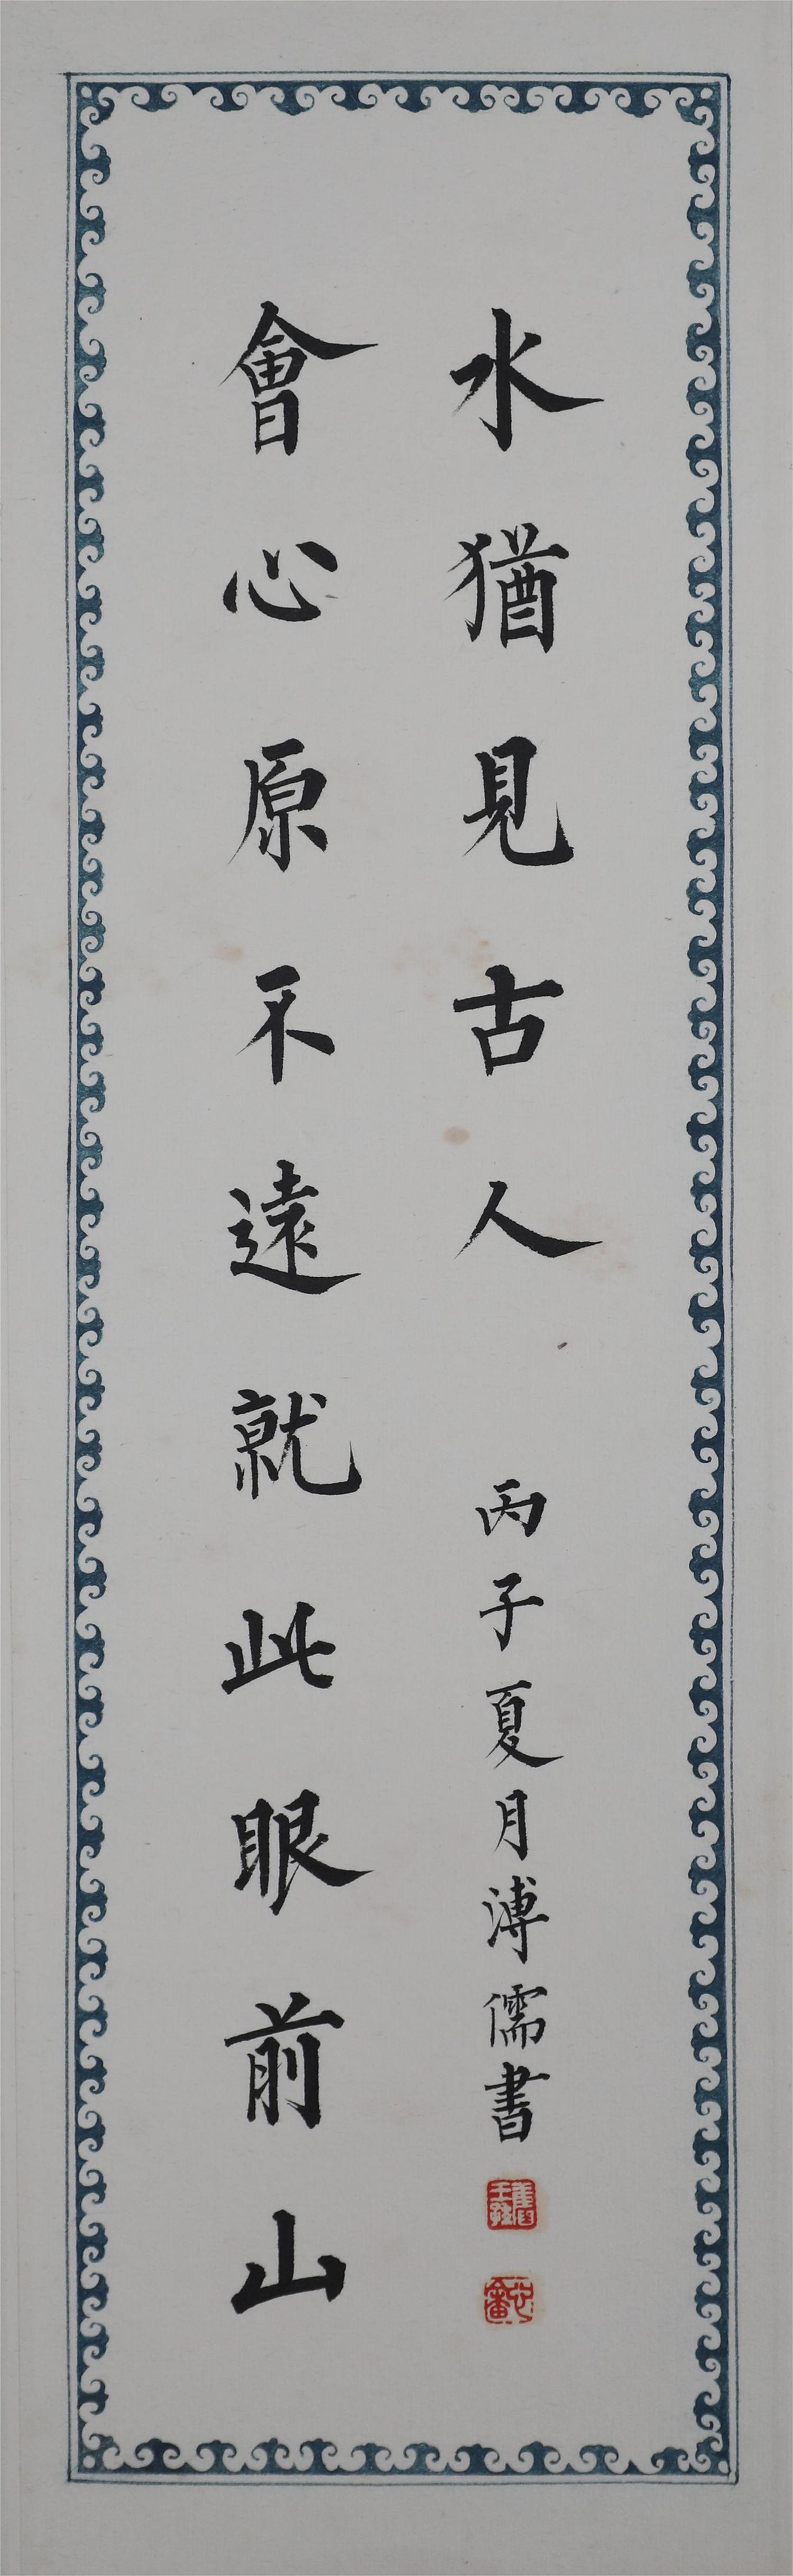 會心原不遠就此眼前山
水猶見古人
丙子夏月溥儒書
心畬